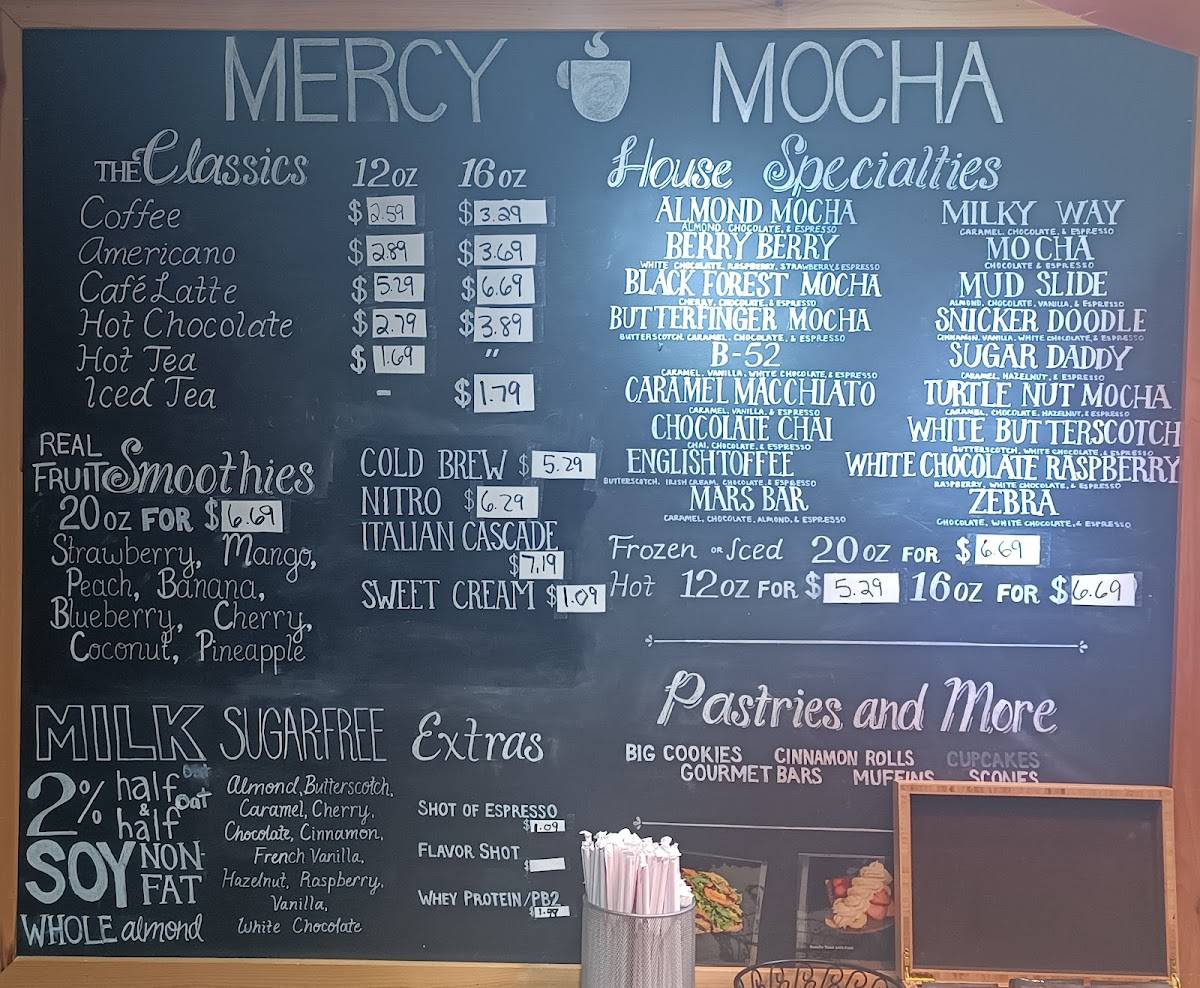 MERCY MOCHA
THE Classics 12oz 16oz
Coffee $2.59 $3.29
Americano $2.89 $3.69
Café Latte $5.29 $6.69
Hot Chocolate $2.79 $3.89
Hot Tea $1.69 "
Iced Tea - $1.79
REAL
FRUIT Smoothies
20oz FOR $6.69
Strawberry, Mango,
Peach, Banana,
Blueberry, Cherry,
Coconut, Pineapple
COLD BREW $5.29
NITRO $6.29
ITALIAN CASCADE
$7.19
SWEET CREAM $1.09
House Specialties
ALMOND MOCHA
ALMOND, CHOCOLATE, & ESPRESSO
BERRY BERRY
WHITE CHOCOLATE, RASPBERRY, STRAWBERRY & ESPRESSO
BLACK FOREST MOCHA
CHERRY, CHOCOLATE, & ESPRESSO
BUTTERFINGER MOCHA
BUTTERSCOTCH, CARAMEL, CHOCOLATE, & ESPRESSO
B-52
CARAMEL, VANILLA, WHITE CHOCOLATE, & ESPRESSO
CARAMEL MACCHIATO
CARAMEL, VANILLA, & ESPRESSO
CHOCOLATE CHAI
CHAI, CHOCOLATE, & ESPRESSO
ENGLISH TOFFEE
BUTTERSCOTCH, IRISH CREAM, CHOCOLATE, & ESPRESSO
MARS BAR
CARAMEL, CHOCOLATE, ALMOND, & ESPRESSO
MILKY WAY
CARAMEL, CHOCOLATE, & ESPRESSO
MOCHA
CHOCOLATE & ESPRESSO
MUD SLIDE
ALMOND, CHOCOLATE, VANILLA, & ESPRESSO
SNICKER DOODLE
CINNAMON, VANILLA, WHITE CHOCOLATE, & ESPRESSO
SUGAR DADDY
CARAMEL, HAZELNUT, & ESPRESSO
TURTLE NUT MOCHA
CARAMEL, CHOCOLATE, HAZELNUT, & ESPRESSO
WHITE BUTTERSCOTCH
BUTTERSCOTCH, WHITE CHOCOLATE, & ESPRESSO
WHITE CHOCOLATE RASPBERRY
RASPBERRY, WHITE CHOCOLATE, & ESPRESSO
ZEBRA
CHOCOLATE, WHITE CHOCOLATE, & ESPRESSO
Frozen OR Iced 20oz FOR $6.69
Hot 12oz FOR $5.29 16oz FOR $6.69
Pastries and More
BIG COOKIES CINNAMON ROLLS CUPCAKES
GOURMET BARS MUFFINS SCONES
MILK
2% half & half oat
SOY NON-FAT
WHOLE almond
SUGAR-FREE
Almond, Butterscotch,
Caramel, Cherry,
Chocolate, Cinnamon,
French Vanilla,
Hazelnut, Raspberry,
Vanilla,
White Chocolate
Extras
SHOT OF ESPRESSO
$1.09
FLAVOR SHOT
$
WHEY PROTEIN/PB2